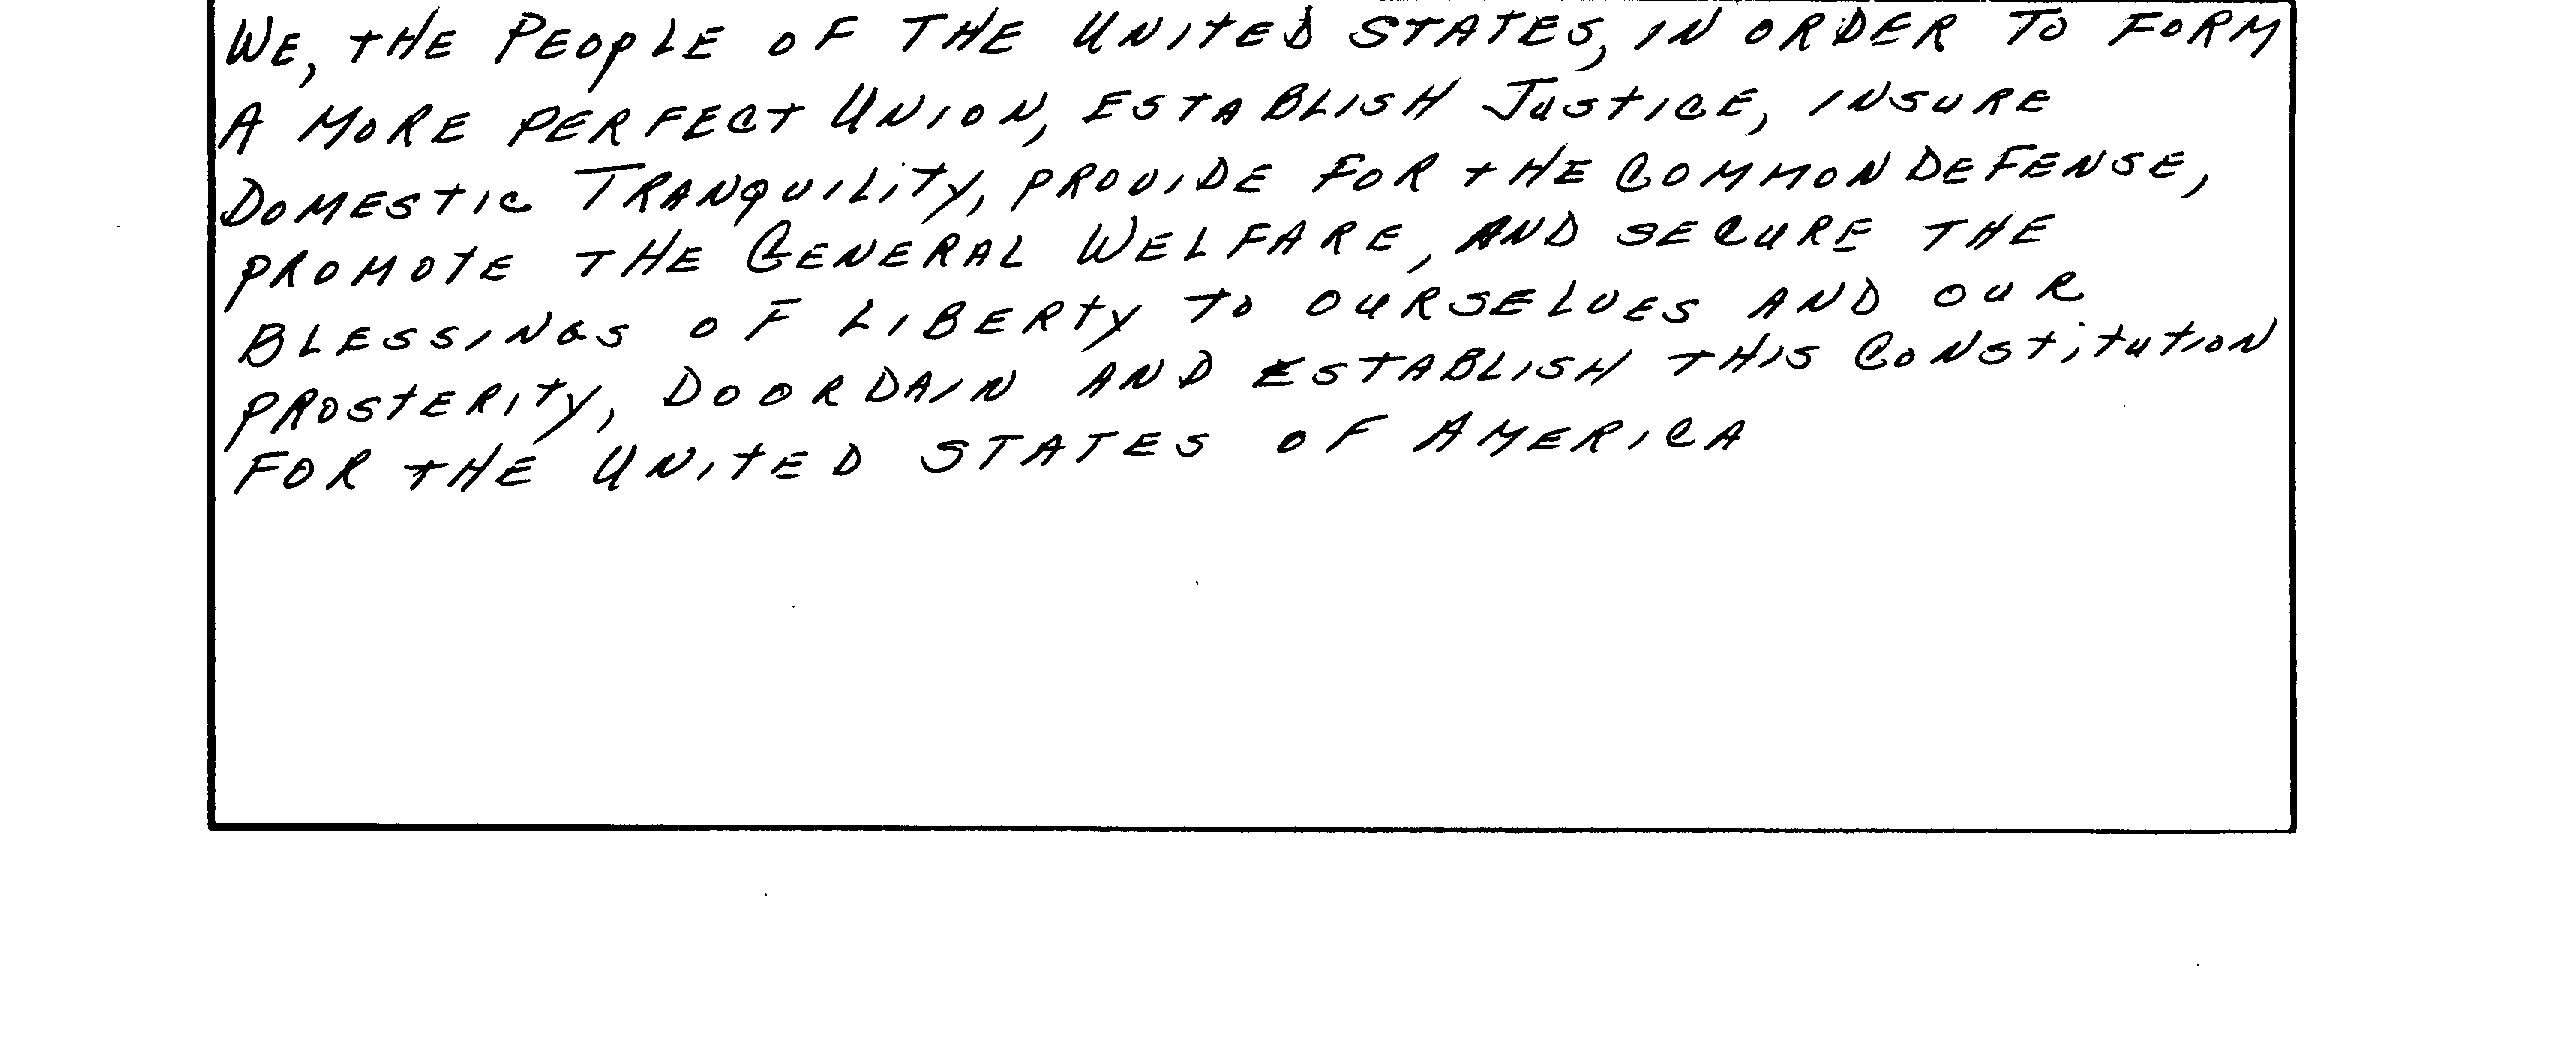 WE, THE PEOPLE OF THE UNITED STATES, IN ORDER TO FORM
A MORE PERFECT UNION, ESTABLISH JUSTICE, INSURE
DOMESTIC TRANQUILITY, PROVIDE FOR THE COMMON DEFENSE,
PROMOTE THE GENERAL WELFARE, AND SECURE THE
BLESSINGS OF LIBERTY TO OURSELVES AND OUR
PROSTERITY, DO ORDAIN AND ESTABLISH THIS CONSTITUTION
FOR THE UNITED STATES OF AMERICA